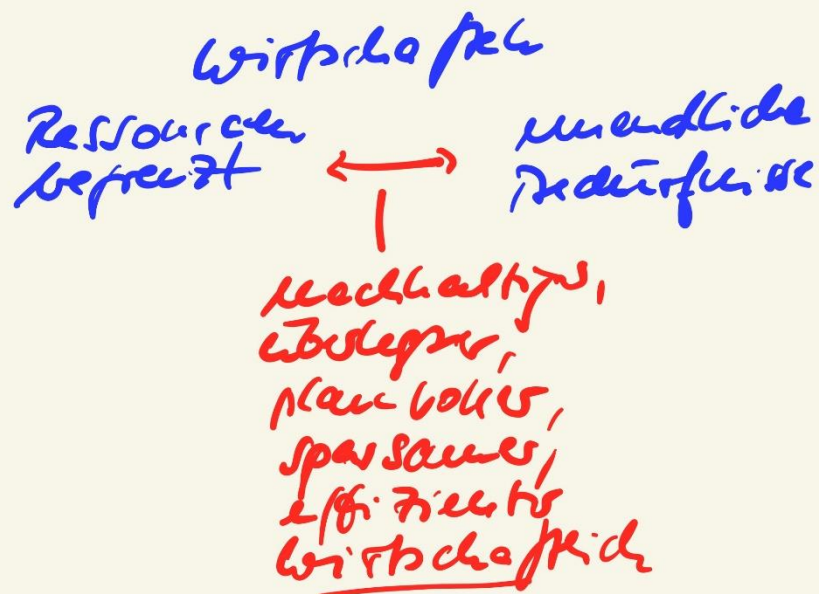 Wirtschaften
Ressourcen
begrenzt
unendliche
Bedürfnisse
nachhaltiger,
überlegter,
planvoller,
sparsamer,
effizienter
wirtschaftlich